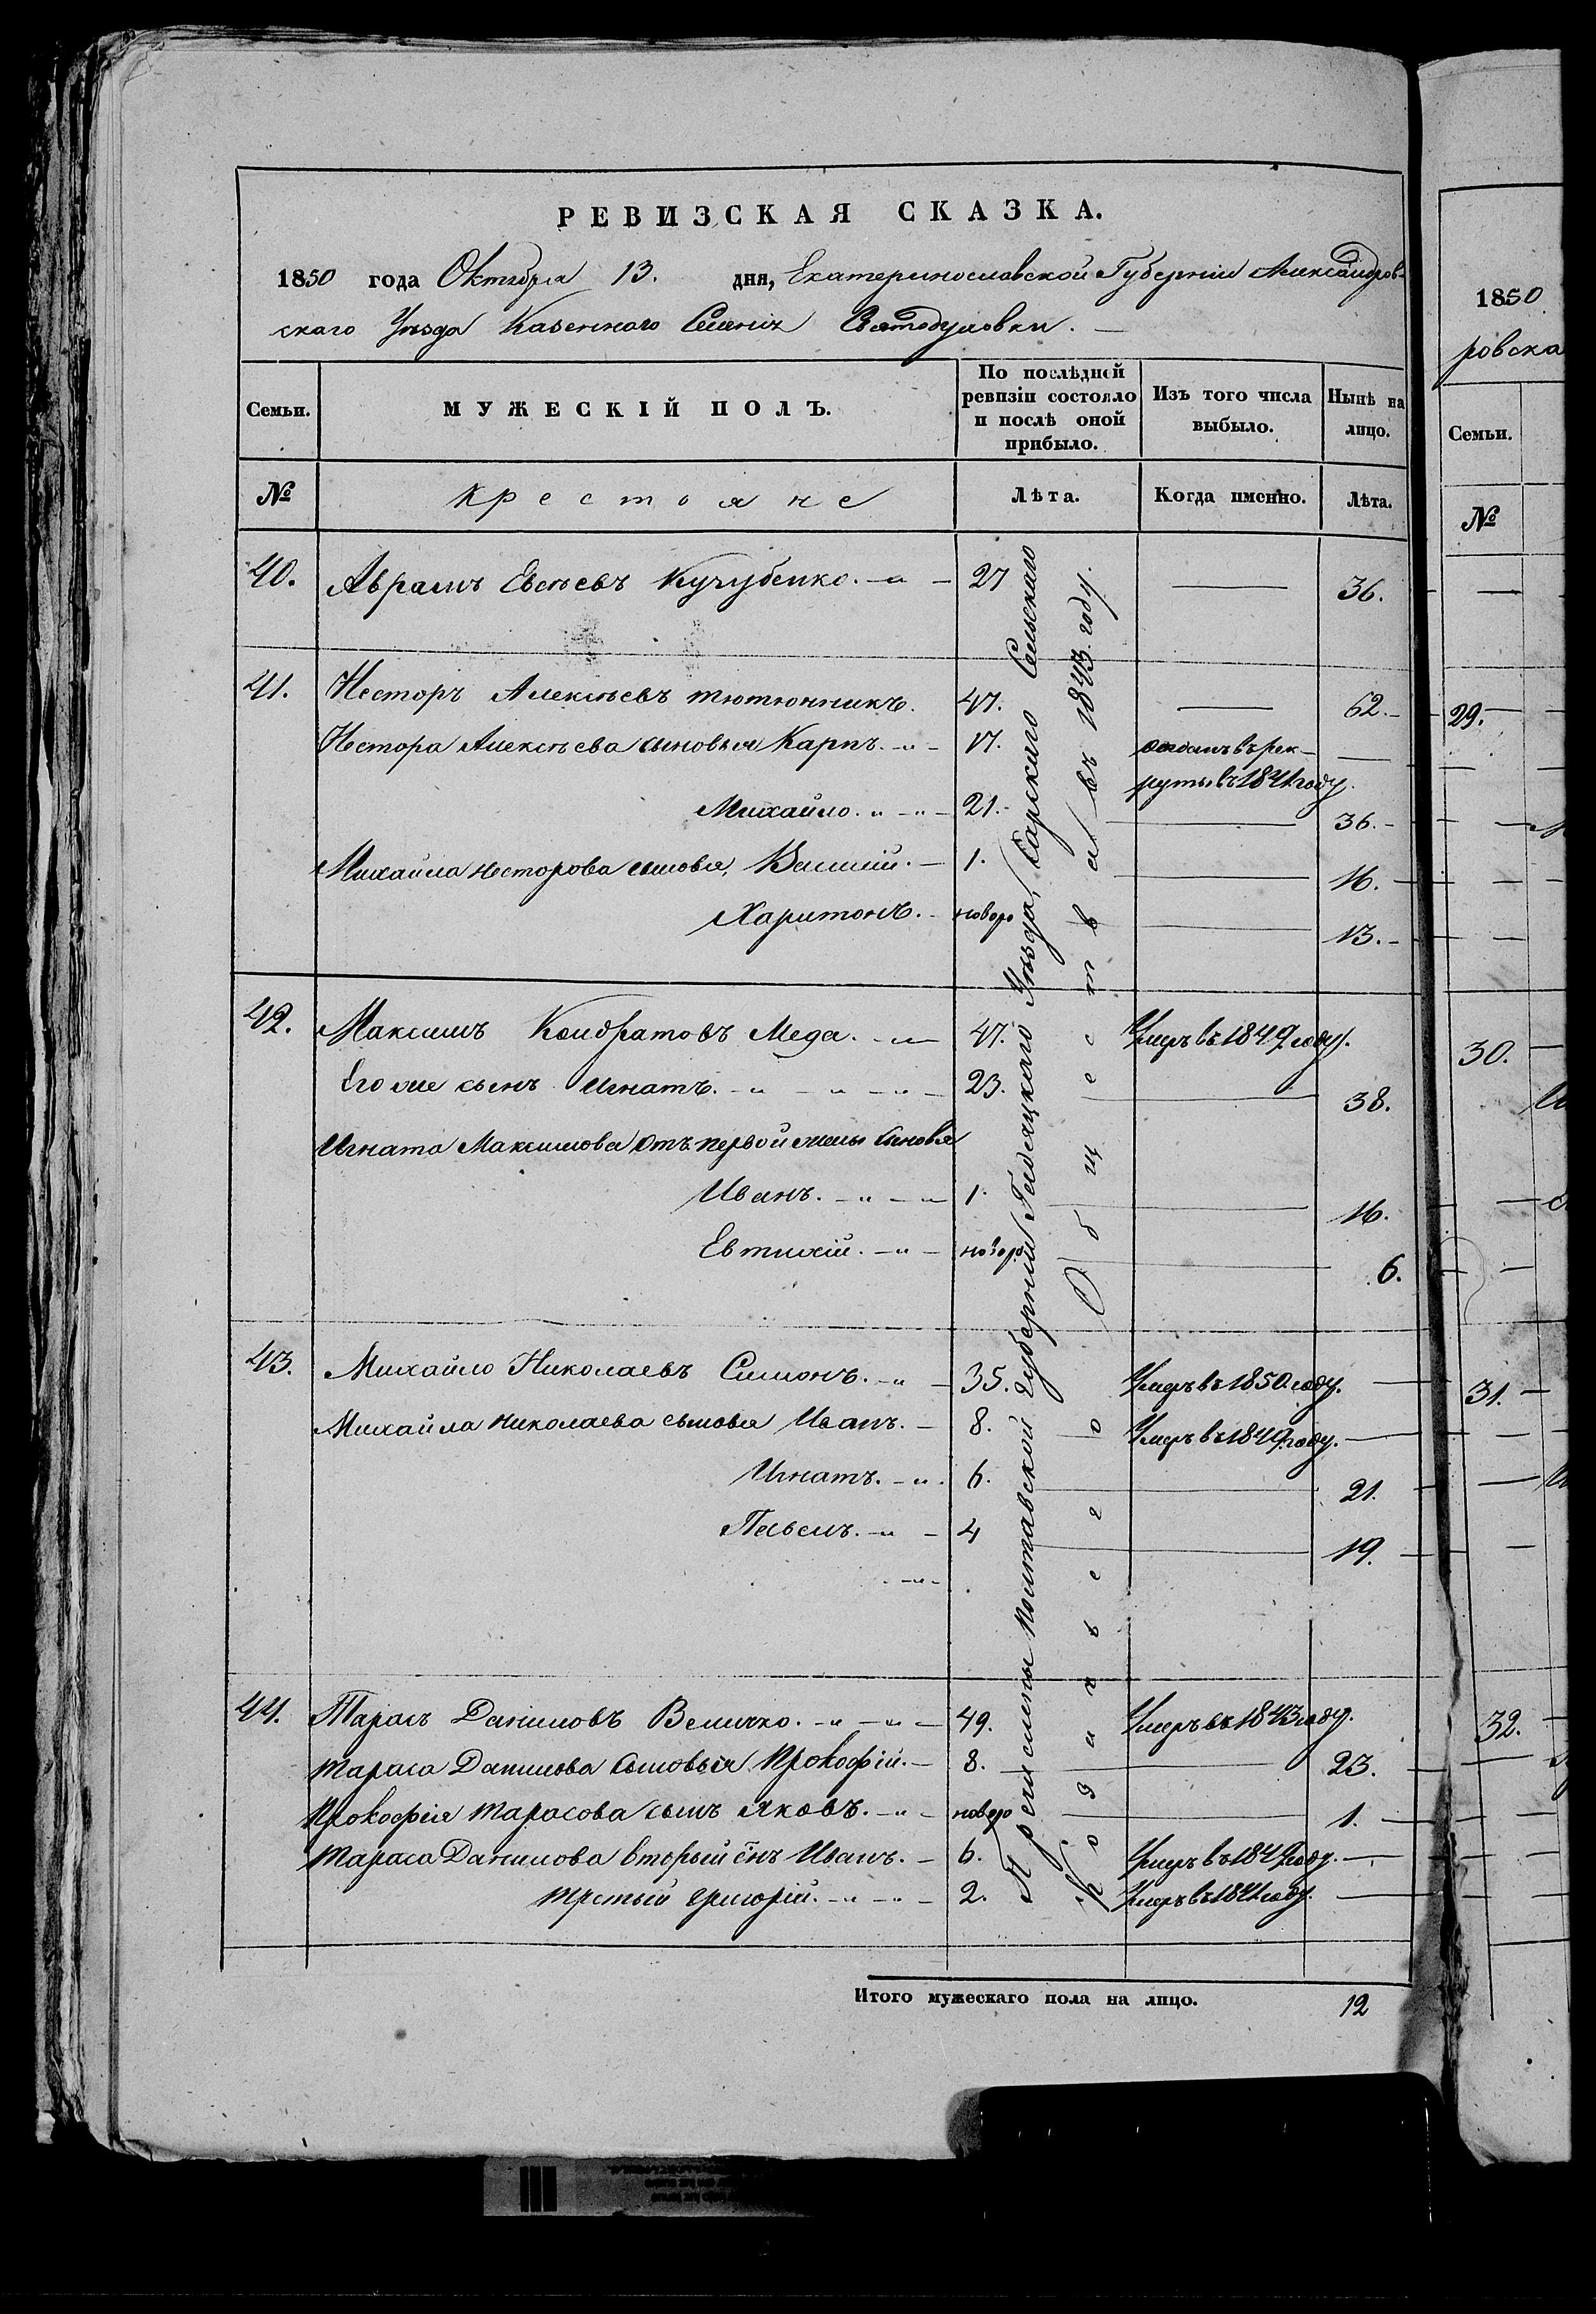 РЕВИЗСКАЯ СКАЗКА.
1850 года Октября 13. дня, Екатеринославской Губерніи Александров-
скаго Уѣзда Казеннаго Селенія
Семьи. МУЖЕСКІЙ ПОЛЪ. По послѣдней ревизіи состояло и послѣ оной прибыло. Изъ того числа выбыло. Нынѣ на лицо.
№ Крестьяне Лѣта. Когда именно. Лѣта.
40. Аврамъ Евсѣевъ Кучубенко. 27 — 36.
41. Несторъ Алексѣевъ Тютюнникъ. 47. — 62.
Нестора Алексѣева сыновья Карпъ. 17. отданъ въ рек-
руты въ 1841 году.
Михайло. 21. — 36.
Михайла Несторова сыновья, Василій. 1. — 16.
Харитонъ. новоро — 13.
42. Максимъ Кондратовъ Меда. 47. Умеръ въ 1849 году.
Его же сынъ Игнатъ. 23. — 38.
Игната Максимова отъ первой жены сыновья
Иванъ. 1. — 16.
Евтихій. новоро — 6.
43. Михайло Николаевъ Симонъ. 35. Умеръ въ 1850 году. —
Михайла Николаева сыновья Иванъ. 8. Умеръ въ 1849 году. —
Игнатъ. 6. — 21.
Павелъ. 4 — 19.
44. Тарасъ Даниловъ Величко. 49. Умеръ въ 1843 году.
Тараса Данилова сыновья Прокофій. 8. — 23.
Прокофія Тарасова сынъ Яковъ. новоро — 1.
Тараса Данилова вторый снъ Иванъ. 6. Умеръ въ 1849 году. —
третій Григорій. 2. Умеръ въ 1841 году. —
Полтавской губерніи Гадяцкаго Уѣзда, Сарскаго Сельскаго
Общества въ 1843. году.
Итого мужескаго пола на лицо. 12
1850
ровска
Семьи.
№
29.
30.
31.
32.